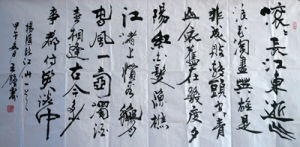 滚々長江東逝水
浪花淘盡英雄是
非成敗轉頭空青
山依舊在幾度夕
陽紅白髮漁樵
江渚上慣看秋月
春風一壺濁酒喜
相逢古今多少
事都付笑談中
楊慎臨江仙
甲午